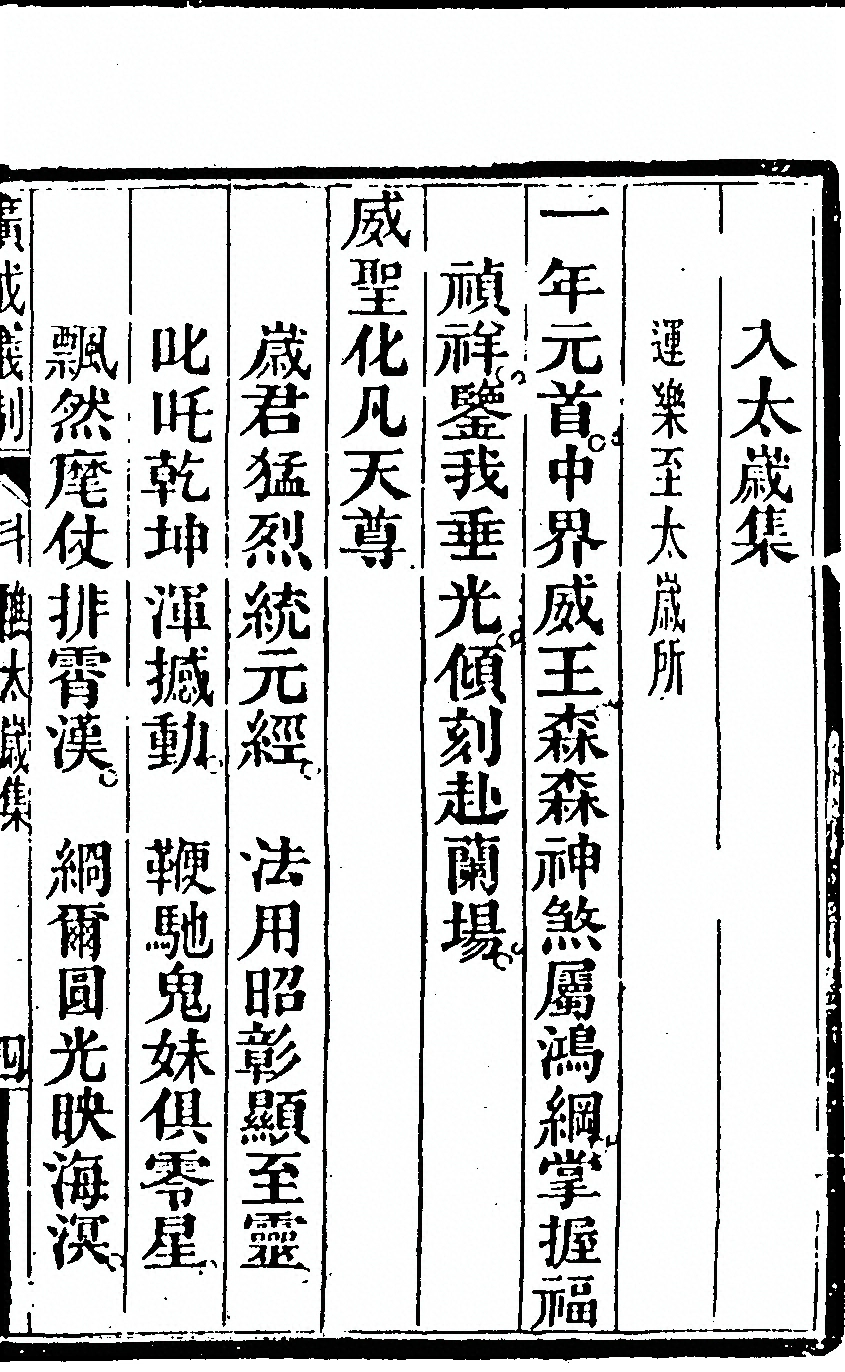 入太歲集
運樂至太歲所
一年元首中界威王森森神煞屬鴻綱掌握福
禎祥鑒我垂光傾刻赴蘭場
威聖化凡天尊
歲君猛烈統元經 法用昭彰顯至靈
叱吒乾坤渾撼動 鞭馳鬼妹俱零星
飄然麾仗排霄漢 綱爾圓光映海溟
廣成儀制 醮太歲集 四